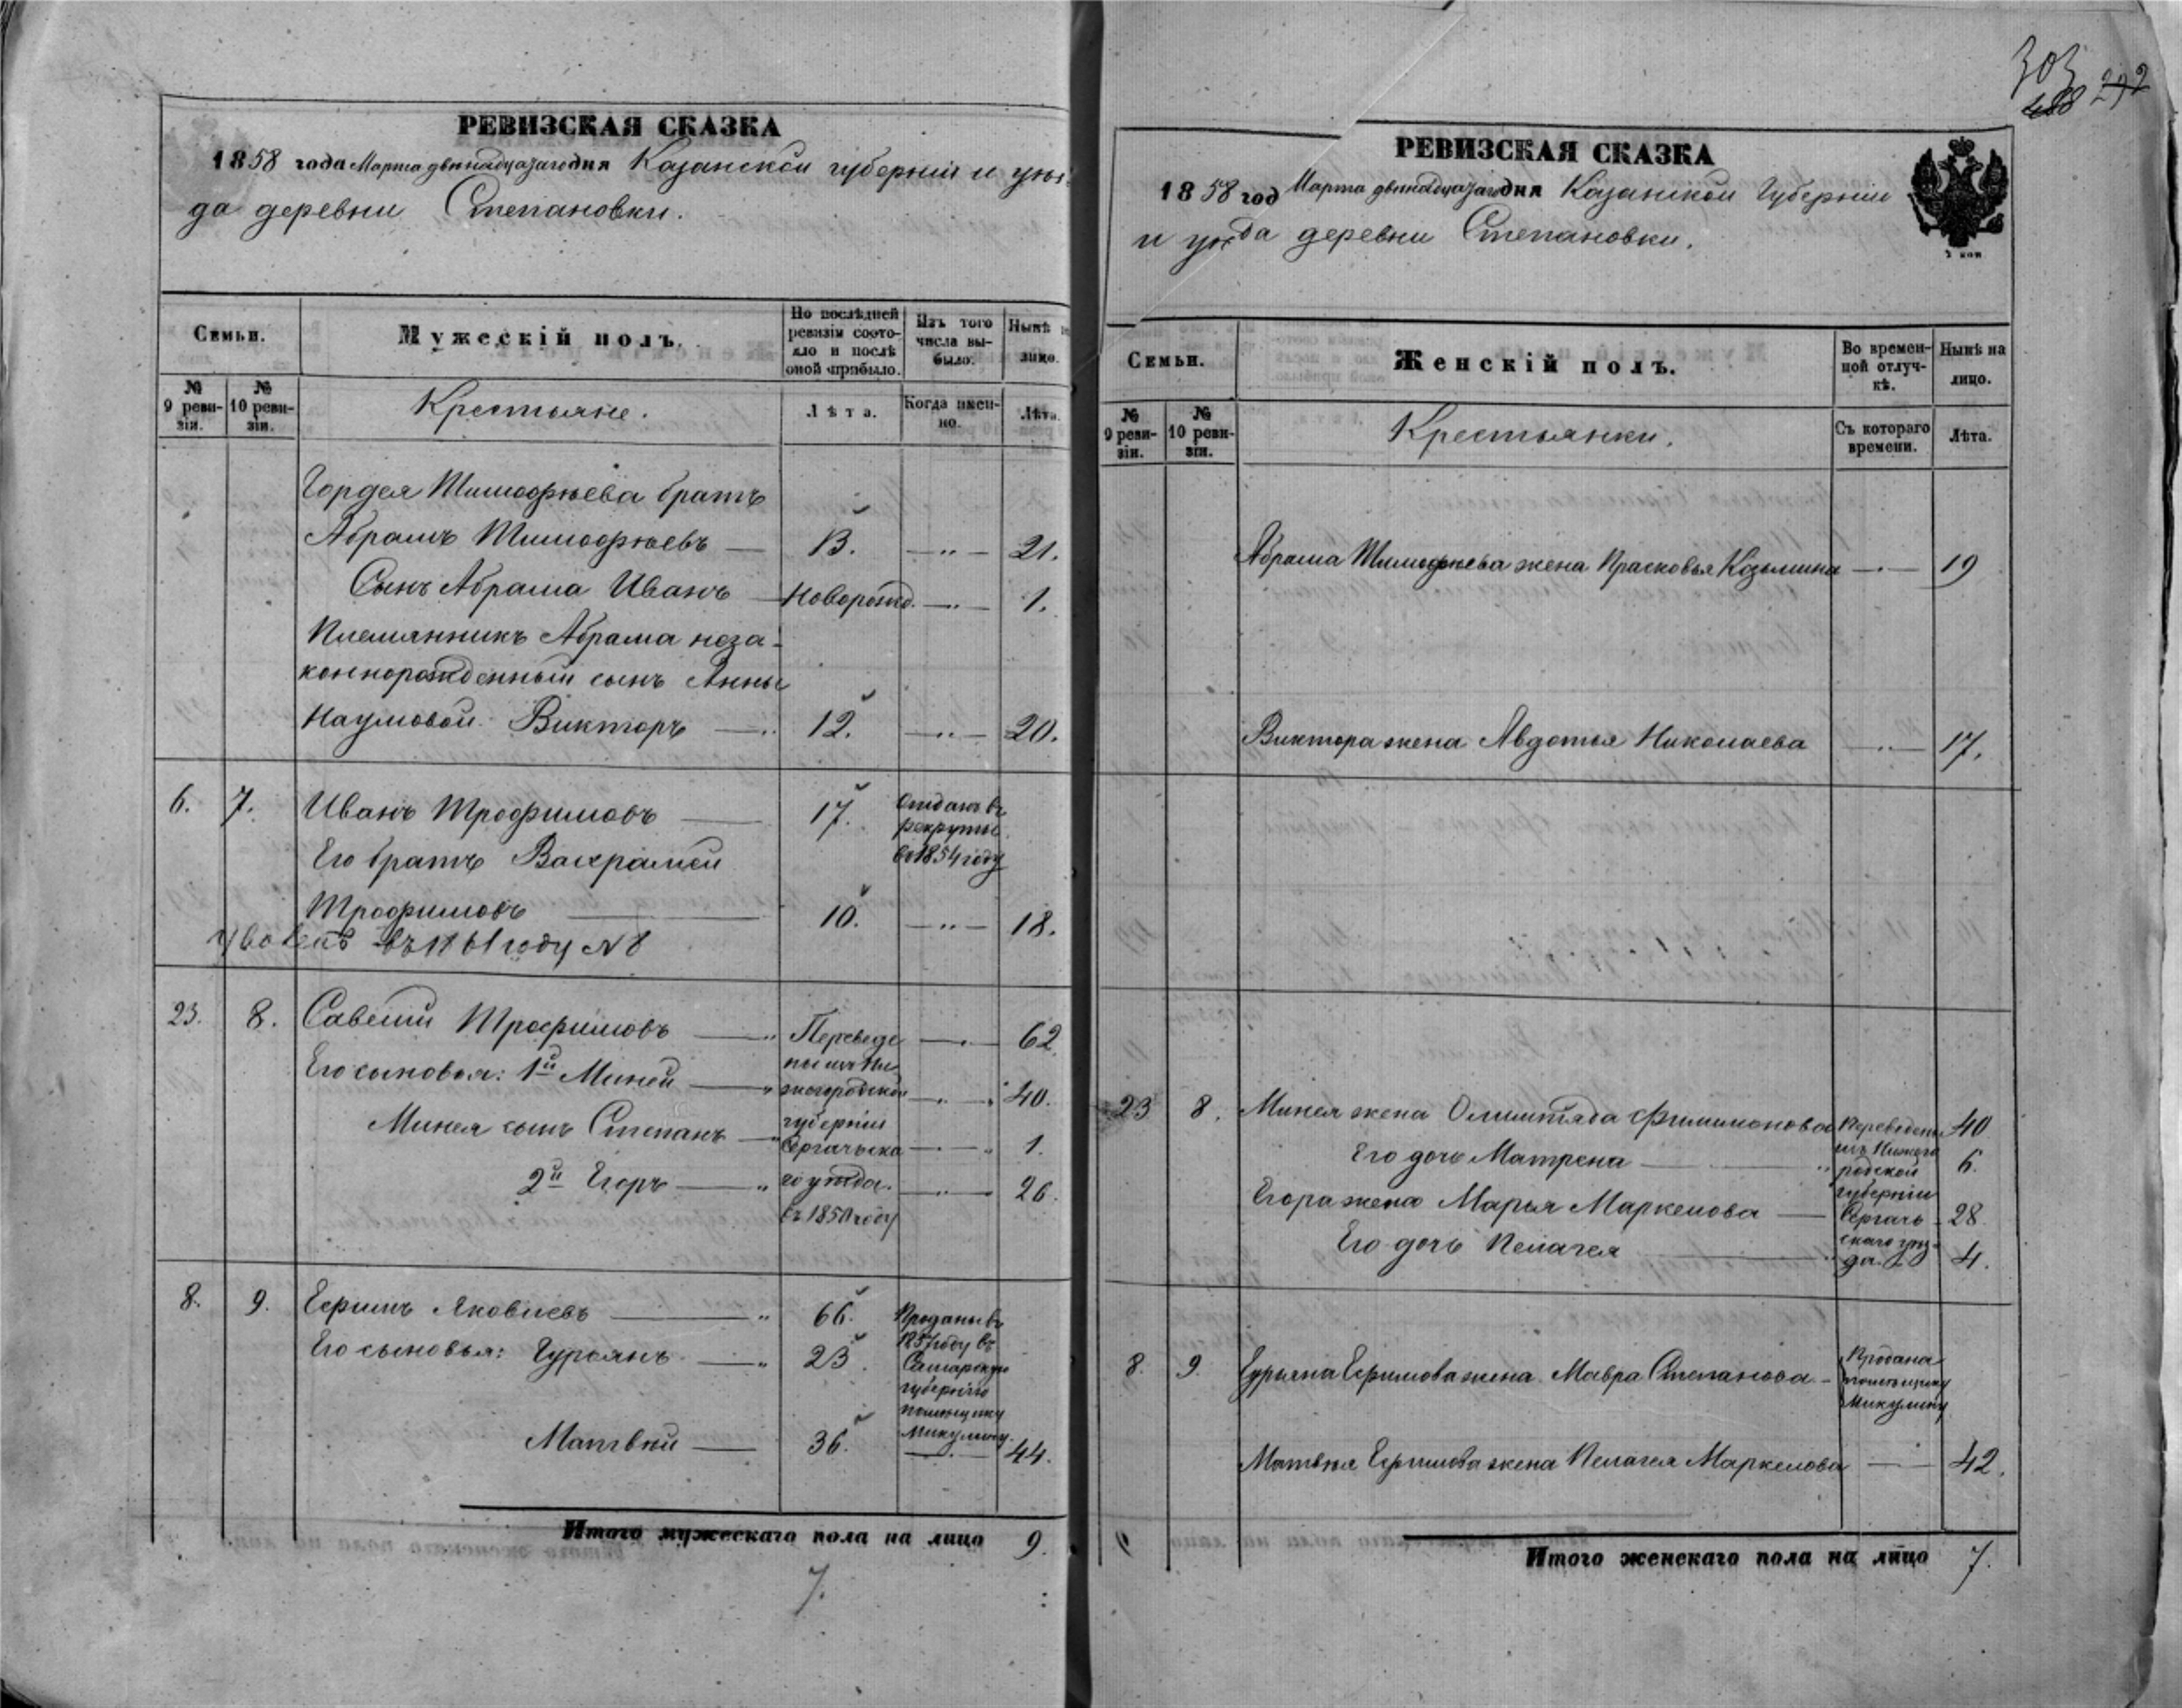 РЕВИЗСКАЯ СКАЗКА
1858 года Марта двенадцатаго дня Казанской губерніи и уѣз
да деревни Степановки.
Семьи.
Мужескій полъ.
По послѣдней ревизіи состояло и послѣ оной прибыло.
Изъ того числа выбыло.
Нынѣ на лицо.
№ 9 ревизіи.
№ 10 ревизіи.
Крестьяне.
Лѣта.
Когда именно.
Лѣта.
Гордея Тимофѣева братъ
Абрамъ Тимофѣевъ — 13. — 21.
Сынъ Абрама Иванъ — Новорожд. — 1.
Племянникъ Абрама неза-
коннорожденный сынъ Анны
Наумовой Викторъ — 12. — 20.
6. 7. Иванъ Трофимовъ — 17. Отданъ въ
рекруты
въ 1854 году
Его братъ Вахрамей
Трофимовъ — 10. — 18.
въ 1861 году № 8
23. 8. Савелій Трофимовъ — Переведе — 62.
Его сыновья: 1й Миней — ны изъ Ни — 40.
жегородской
Минея сынъ Степанъ — губерніи — 1.
Сергачьска
2й Егоръ — го уѣзда. — 26.
въ 1850 году
8. 9. Ефимъ Яковлевъ — 66. Проданы въ
Его сыновья: Гурьянъ — 23. 1857 году въ
Самарскую
губернію
помѣщику
Микулину.
Матвѣй — 36. — 44.
Итого мужескаго пола на лицо 9.
7.
303
488 292
РЕВИЗСКАЯ СКАЗКА
1858 год Марта двенадцатаго дня Казанской Губерніи
и уѣзда деревни Степановки.
Семьи.
Женскій полъ.
Во временной отлучкѣ.
Нынѣ на лицо.
№ 9 ревизіи.
№ 10 ревизіи.
Крестьянки.
Съ котораго времени.
Лѣта.
Абрама Тимофѣева жена Прасковья Козьмина — 19
Виктора жена Авдотья Николаева — 17.
23 8. Минея жена Олимпіада Филимонова Переведены 40
изъ Нижего
Его дочь Матрена — родской 6.
губерніи
Егора жена Марья Маркелова — Сергачь- 28.
скаго уѣз-
Его дочь Пелагея — да. 4.
8. 9. Гурьяна Ефимова жена Мавра Степанова — Продана
помѣщику
Микулину
Матвѣя Ефимова жена Пелагея Маркелова — 42.
Итого женскаго пола на лицо 7.